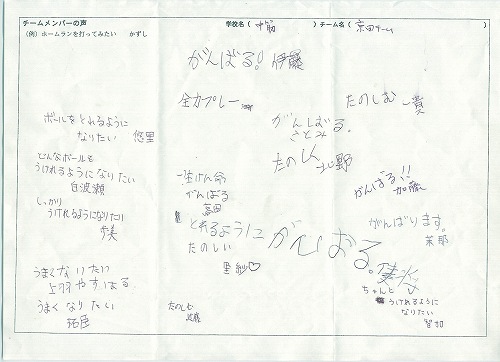 チームメンバーの声
（例）ホームランを打ってみたい　かずし
学校名（ 中筋 ）チーム名（ 京田チーム ）
がんばる! 伊藤
全力プレー
たのしむ 一貴
ボールをとれるように
なりたい 悠里
がんばる。
さとみ
たのしく 北野
どんなボールも
うけれるようになりたい
白波瀬
一生けん命
がんばる
高田
がんばる!! 加藤
しっかり
うけれるようになりたい
歩美
とれるように
たのしい
里紗♡
がんばる。
がんばります。
茉耶
うまくないたい
上
うまくなりたい
拓臣
たのしむ
近藤
ちゃんと
うけれるように
なりたい
智加